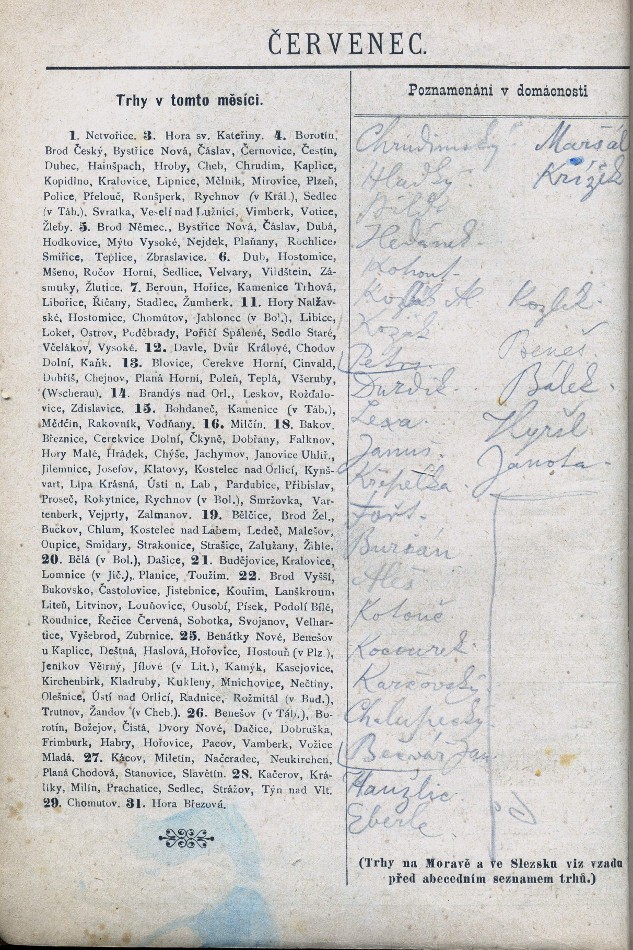 ČERVENEC.
Trhy v tomto měsíci.
1. Netvořice. 3. Hora sv. Kateřiny. 4. Borotín,
Brod Český, Bystřice Nová, Čáslav, Černovice, Čestín,
Dubec, Hainšpach, Hroby, Cheb, Chrudim, Kaplice,
Kopidlno, Kralovice, Lipnice, Mělník, Mirovice, Plzeň,
Police, Přelouč, Ronšperk, Rychnov (v Král.), Sedlec
(v Táb.), Svratka, Veselí nad Lužnicí, Vimberk, Votice,
Žleby. 5. Brod Němec., Bystřice Nová, Čáslav, Dubá,
Hodkovice, Mýto Vysoké, Nejdek, Plaňany, Rochlice,
Smiřice, Teplice, Zbraslavice. 6. Dub, Hostomice,
Mšeno, Ročov Horní, Sedlice, Velvary, Vildštein, Zá-
smuky, Žlutice. 7. Beroun, Hořice, Kamenice Trhová,
Libořice, Říčany, Stadlec, Žumberk. 11. Hory Nalžav-
ské, Hostomice, Chomútov, Jablonec (v Bol.), Libice,
Loket, Ostrov, Poděbrady, Poříčí Spálené, Sedlo Staré,
Včelákov, Vysoké. 12. Davle, Dvůr Králové, Chodov
Dolní, Kaňk. 13. Blovice, Cerekve Horní, Cinvald,
Dobříš, Chejnov, Planá Horní, Poleň, Teplá, Všeruby,
(Wscherau). 14. Brandýs nad Orl., Leskov, Rožďalo-
vice, Zdislavice. 15. Bohdaneč, Kamenice (v Táb.),
Mědčín, Rakovník, Vodňany. 16. Milčín. 18. Bakov,
Březnice, Cerekvice Dolní, Čkyně, Dobřany, Falknov,
Hory Malé, Hrádek, Chýše, Jachymov, Janovice Uhlíř.,
Jilemnice, Josefov, Klatovy, Kostelec nad Orlicí, Kynš-
vart, Lípa Krásná, Ústí n. Lab., Pardubice, Přibislav,
Proseč, Rokytnice, Rychnov (v Bol.), Smržovka, Var-
tenberk, Vejprty, Zalmanov. 19. Bělčice, Brod Žel.,
Bučkov, Chlum, Kostelec nad Labem, Ledeč, Malešov,
Oupice, Smidary, Strakonice, Strašice, Zalužany, Žihle.
20. Bělá (v Bol.), Dašice, 21. Budějovice, Kralovice,
Lomnice (v Jič.), Planice, Toužim. 22. Brod Vyšší,
Bukovsko, Častolovice, Jistebnice, Kouřim, Lanškroun,
Liteň, Litvínov, Louňovice, Ousobí, Písek, Podolí Bílé,
Roudnice, Řečice Červená, Sobotka, Svojanov, Velhar-
tice, Vyšebrod, Zubrnice. 25. Benátky Nové, Benešov
u Kaplice, Deštná, Haslová, Hořovice, Hostouň (v Plz.),
Jeníkov Větrný, Jílové (v Lit.), Kamýk, Kasejovice,
Kirchenbirk, Kladruby, Kukleny, Mnichovice, Nečtiny,
Olešnice, Ústí nad Orlicí, Radnice, Rožmitál (v Bud.),
Trutnov, Žandov (v Cheb.). 26. Benešov (v Táb.), Bo-
rotín, Božejov, Čistá, Dvory Nové, Dačice, Dobruška,
Frimburk, Habry, Hořovice, Pacov, Vamberk, Vožice
Mladá. 27. Kácov, Miletín, Načeradec, Neukirchen,
Planá Chodová, Stanovice, Slavětín. 28. Kačerov, Krá-
líky, Milín, Prachatice, Sedlec, Strážov, Týn nad Vlt.
29. Chomutov. 31. Hora Březová.
Poznamenání v domácnosti
Chrudimský Maršál
Hladký Křížek
Bílek
Heřánek
Kohout
M Kozlík
Kozák
Beneš
Petr
Durdík Bálek
Lexa Hyršl
Januš Janota
Křepelka
Fořt
Burian
Aleš
Kotouč
Kocourek
Karšovský
Chalupecký
Becvář Jan
Hanzlic
Eberle
(Trhy na Moravě a ve Slezsku viz vzadu
před abecedním seznamem trhů.)